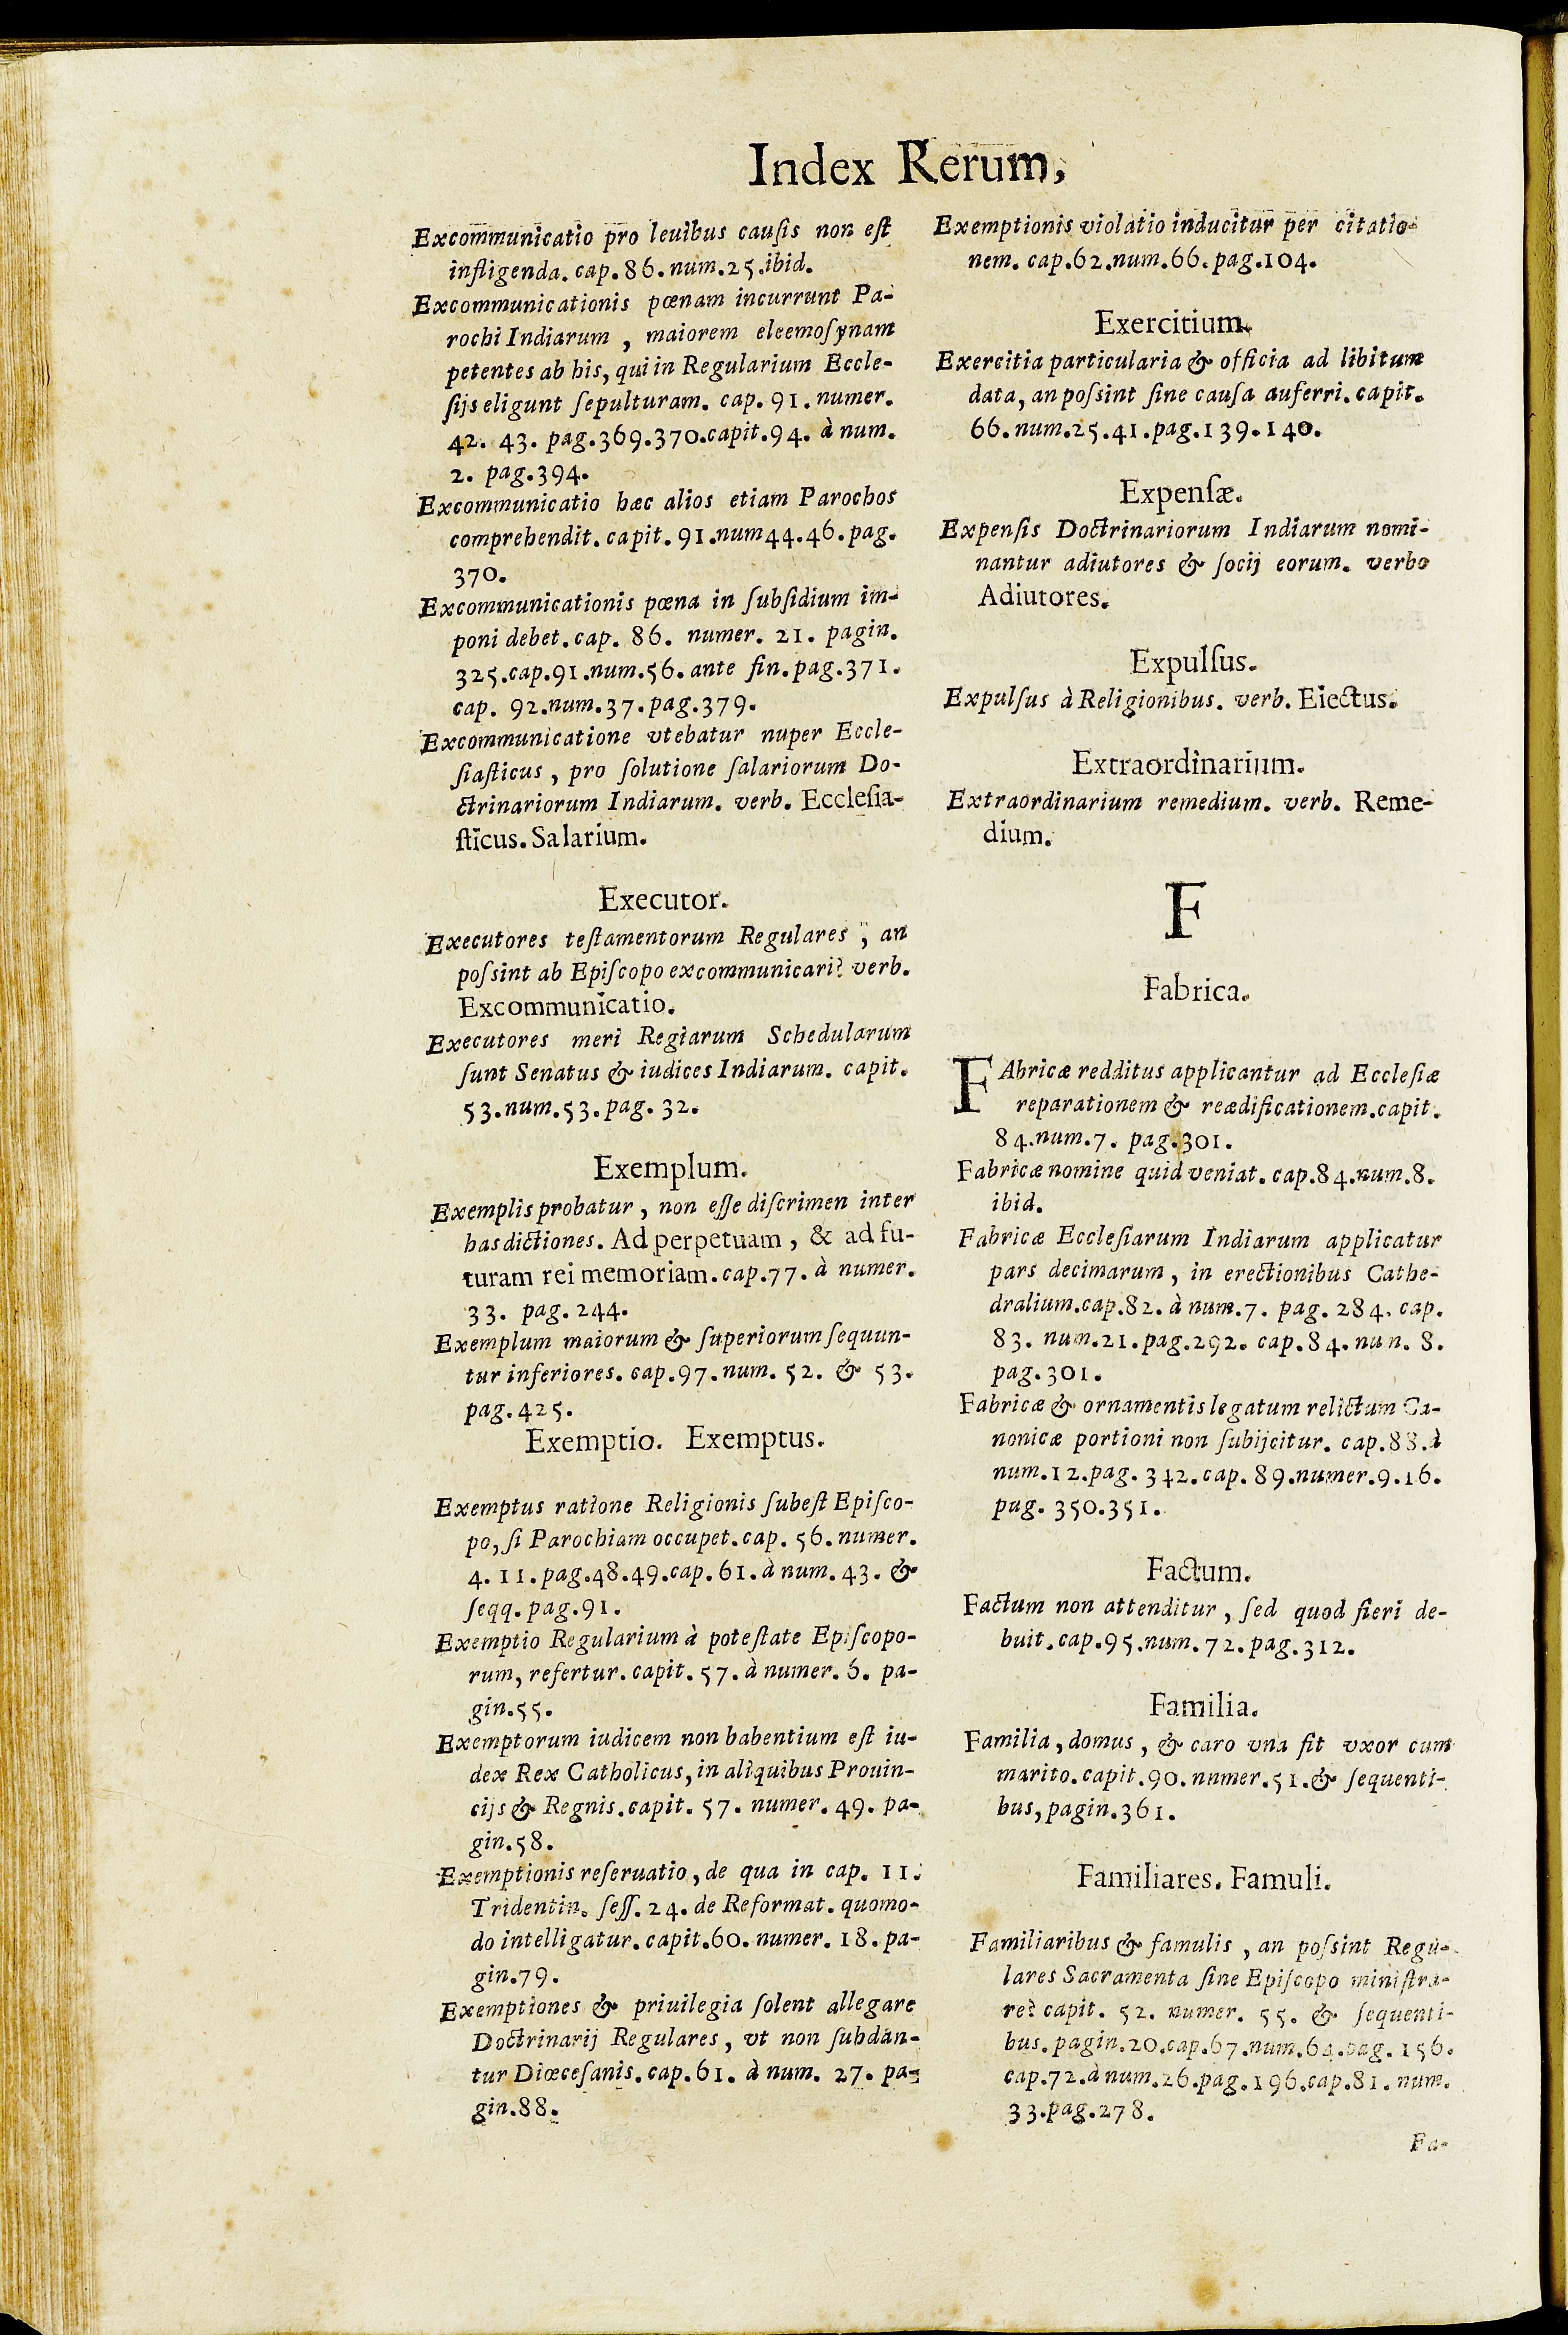 Index Rerum,
Excommunicatio pro leuibus causis non est
infligenda. cap. 86. num. 25. ibid.
Excommunicationis pœnam incurrunt Pa-
rochi Indiarum, maiorem eleemosynam
petentes ab his, qui in Regularium Eccle-
sijs eligunt sepulturam. cap. 91. numer.
42. 43. pag. 369. 370. capit. 94. à num.
2. pag. 394.
Excommunicatio hæc alios etiam Parochos
comprehendit. capit. 91. num 44. 46. pag.
370.
Excommunicationis pœna in subsidium im-
poni debet. cap. 86. numer. 21. pagin.
325. cap. 91. num. 56. ante fin. pag. 371.
cap. 92. num. 37. pag. 379.
Excommunicatione vtebatur nuper Eccle-
siasticus, pro solutione salariorum Do-
ctrinariorum Indiarum. verb. Ecclesia-
sticus. Salarium.
Executor.
Executores testamentorum Regulares, an
possint ab Episcopo excommunicari? verb.
Excommunicatio.
Executores meri Regiarum Schedularum
sunt Senatus & iudices Indiarum. capit.
53. num. 53. pag. 32.
Exemplum.
Exemplis probatur, non esse discrimen inter
has dictiones. Ad perpetuam, & ad fu-
turam rei memoriam. cap. 77. à numer.
33. pag. 244.
Exemplum maiorum & superiorum sequun-
tur inferiores. cap. 97. num. 52. & 53.
pag. 425.
Exemptio. Exemptus.
Exemptus ratione Religionis subest Episco-
po, si Parochiam occupet. cap. 56. numer.
4. 11. pag. 48. 49. cap. 61. à num. 43. &
seqq. pag. 91.
Exemptio Regularium à potestate Episcopo-
rum, refertur. capit. 57. à numer. 6. pa-
gin. 55.
Exemptorum iudicem non habentium est iu-
dex Rex Catholicus, in aliquibus Prouin-
cijs & Regnis. capit. 57. numer. 49. pa-
gin. 58.
Exemptionis reseruatio, de qua in cap. 11.
Tridentin. sess. 24. de Reformat. quomo-
do intelligatur. capit. 60. numer. 18. pa-
gin. 79.
Exemptiones & priuilegia solent allegare
Doctrinarij Regulares, vt non subdan-
tur Diœcesanis. cap. 61. à num. 27. pa-
gin. 88.
Exemptionis violatio inducitur per citatio-
nem. cap. 62. num. 66. pag. 104.
Exercitium.
Exercitia particularia & officia ad libitum
data, an possint sine causa auferri. capit.
66. num. 25. 41. pag. 139. 140.
Expensæ.
Expensis Doctrinariorum Indiarum nomi-
nantur adiutores & socij eorum. verbo
Adiutores.
Expulsus.
Expulsus à Religionibus. verb. Eiectus.
Extraordinarium.
Extraordinarium remedium. verb. Reme-
dium.
F
Fabrica.
FAbricæ redditus applicantur ad Ecclesiæ
reparationem & reædificationem. capit.
84. num. 7. pag. 301.
Fabricæ nomine quid veniat. cap. 84. num. 8.
ibid.
Fabricæ Ecclesiarum Indiarum applicatur
pars decimarum, in erectionibus Cathe-
dralium. cap. 82. à num. 7. pag. 284. cap.
83. num. 21. pag. 292. cap. 84. nun. 8.
pag. 301.
Fabricæ & ornamentis legatum relictum Ca-
nonicæ portioni non subijcitur. cap. 88. à
num. 12. pag. 342. cap. 89. numer. 9. 16.
pag. 350. 351.
Factum.
Factum non attenditur, sed quod fieri de-
buit. cap. 95. num. 72. pag. 312.
Familia.
Familia, domus, & caro vna fit vxor cum
marito. capit. 90. numer. 51. & sequenti-
bus, pagin. 361.
Familiares. Famuli.
Familiaribus & famulis, an possint Regu-
lares Sacramenta sine Episcopo ministra-
re? capit. 52. numer. 55. & sequenti-
bus. pagin. 20. cap. 67. num. 64. pag. 156.
cap. 72. à num. 26. pag. 196. cap. 81. num.
33. pag. 278.
Fa-